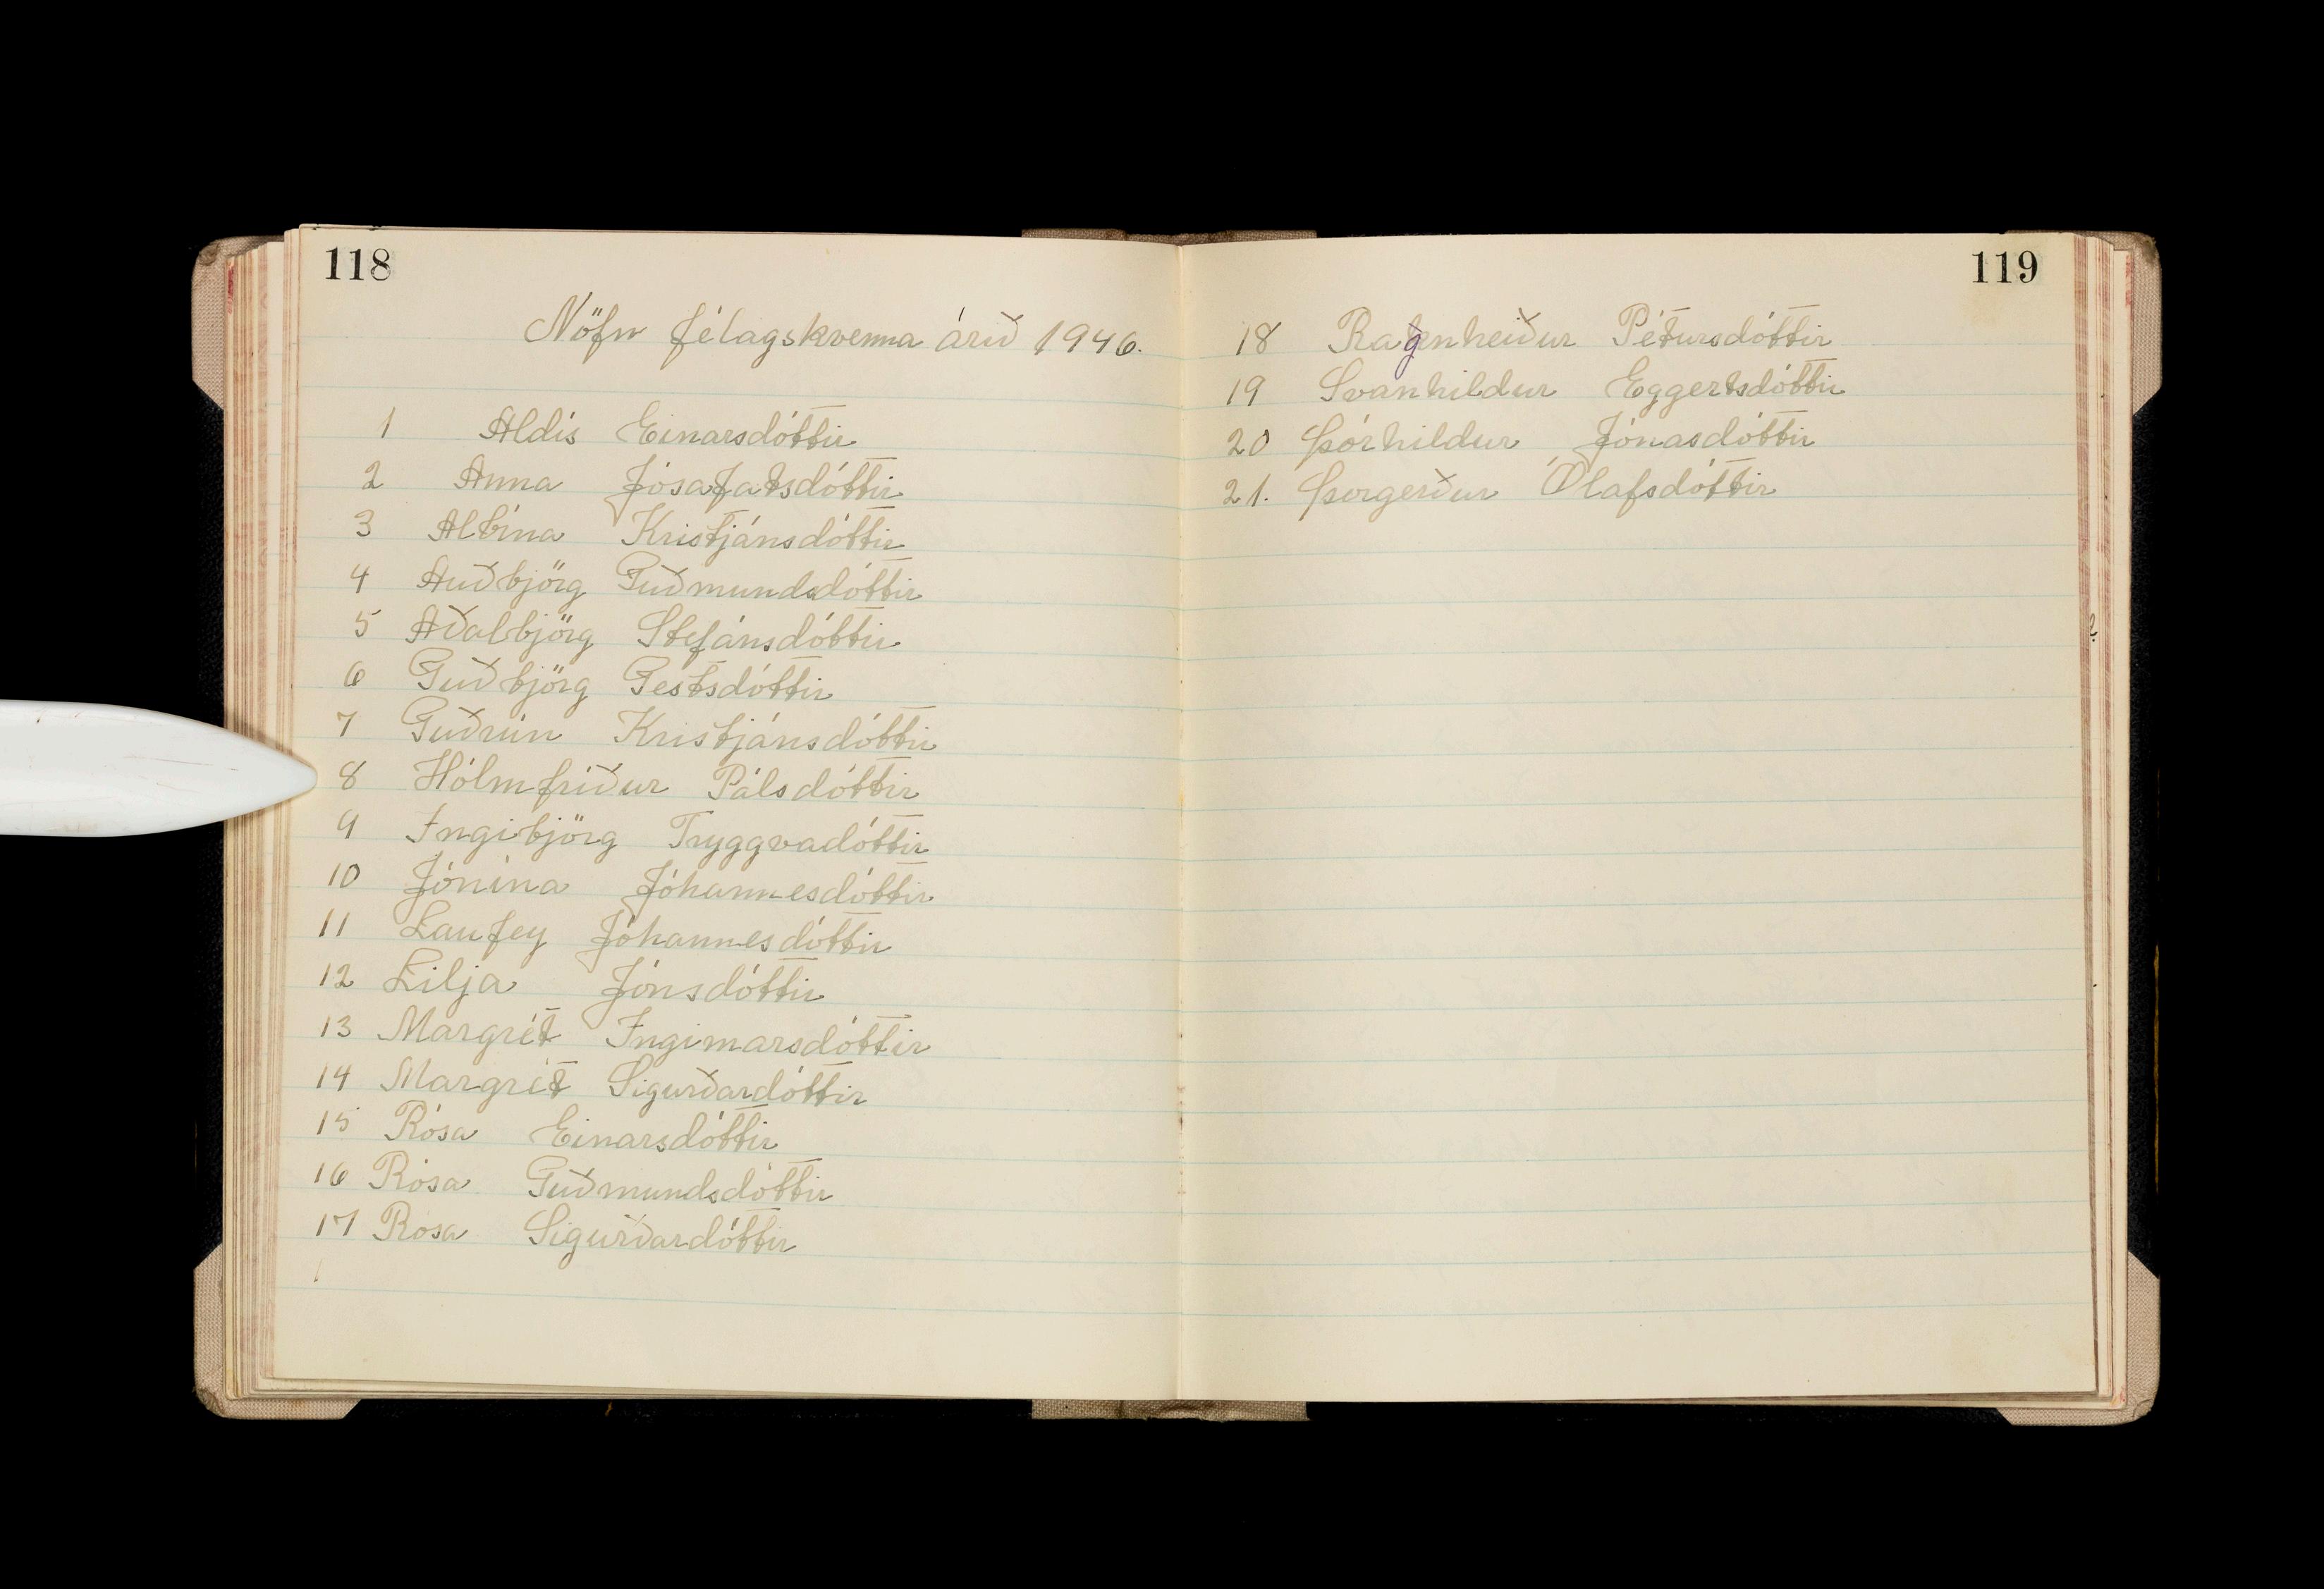 118
Nöfn félagskvenna árið 1946.
1 Aldís Einarsdóttir
2 Anna Jósafatsdóttir
3 Albína Kristjánsdóttir
4 Auðbjörg Guðmundsdóttir
5 Aðalbjörg Stefánsdóttir
6 Guðbjörg Gestsdóttir
7 Guðrún Kristjánsdóttir
8 Hólmfríður Pálsdóttir
9 Ingibjörg Tryggvadóttir
10 Jónína Jóhannesdóttir
11 Laufey Jóhannesdóttir
12 Lilja Jónsdóttir
13 Margrét Ingimarsdóttir
14 Margrét Sigurðardóttir
15 Rósa Einarsdóttir
16 Rósa Guðmundsdóttir
17 Rósa Sigurðardóttir
119
18 Ragnheiður Pétursdóttir
19 Svanhildur Eggertsdóttir
20 Þórhildur Jónasdóttir
21. Þorgerður Ólafsdóttir